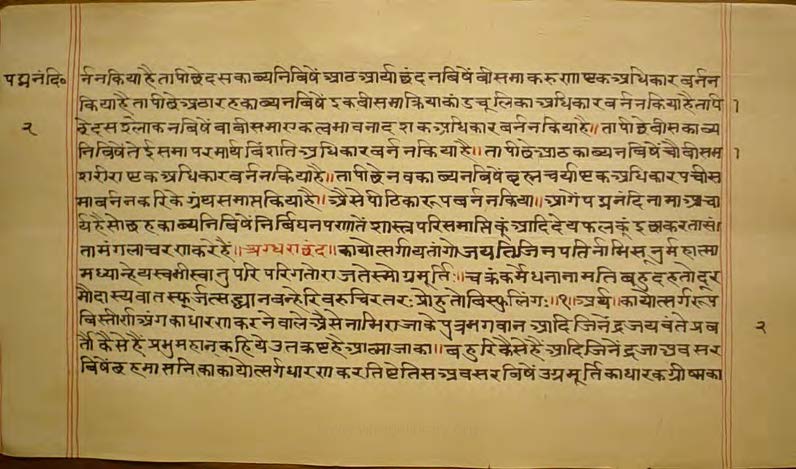 पद्मनंदि॰
२
र्ननकियाहैतापीछैदसकाव्यनिबिषेंआठआर्याछंदनबिषेंबीसमाकरुणाष्टकअधिकारबर्नन
कियाहैतापीछैअठारहकाव्यनबिषेंइकबीसमाक्रियाकांडचूलिकाअधिकारबर्ननकियाहैतापि १
छैदसश्लोकनबिषेंबाबीसमाएकत्वभावनादशकअधिकारबर्ननकियाहै॥तापीछैबीसकाव्य
निबिषेंतेईसमापरमार्थबिंशतिअधिकारबर्ननकियाहै॥तापीछैआठकाव्यनबिषेंचौबीसम १
शरीराष्टकअधिकारबर्ननकियाहै॥तापीछैनवकाव्यनबिषेंब्रह्मचर्याष्टकअधिकारपचीस
माबर्ननकरिकेग्रंथसमाप्तकियाहै॥अैसेपीठिकारूपबर्ननकिया॥आगेंपद्मनंदिनामाआचा
र्यहैसोछहकाव्यनिबिषेंनिर्बिघनपणातेंशास्त्रपरिसमाप्तिकूंआदिदेयफलकूंइछाकरतासं।
तामंगलाचरणकरेहैं॥स्रग्धराछंद॥कायोत्सर्गायतांगोजयतिजिनपतिर्नाभिसूनुर्महात्मा
मध्यान्हेयस्यभास्वानुपरिपरिगतोराजतेस्मोग्रमूर्तिः॥चक्रंकर्मेंधनानामतिबहुदहतोदूर
मौदास्यवातस्फूर्जत्सद्ध्यानवन्हेरिवरुचिरतरःप्रोद्गतोविस्फुलिंगः॥१॥अर्थ॥कायोत्सर्गरूप
बिस्तीर्णअंगकाधारणकरनेवालेअैसेनाभिराजाकेपुत्रभगवानआदिजिनेंद्रजयवंतेप्रव
र्तौकैसेहैंप्रभुमहान्कहियेउतकष्टहैआत्माजाका॥बहुरिकैसेहैंआदिजिनेंद्रजाअवसर
बिषेंछहमासनिकाकायोत्सर्गधारणकरतिष्टेतिसअवसरबिषेंउग्रमूर्तिकाधारकग्रीष्मका
२